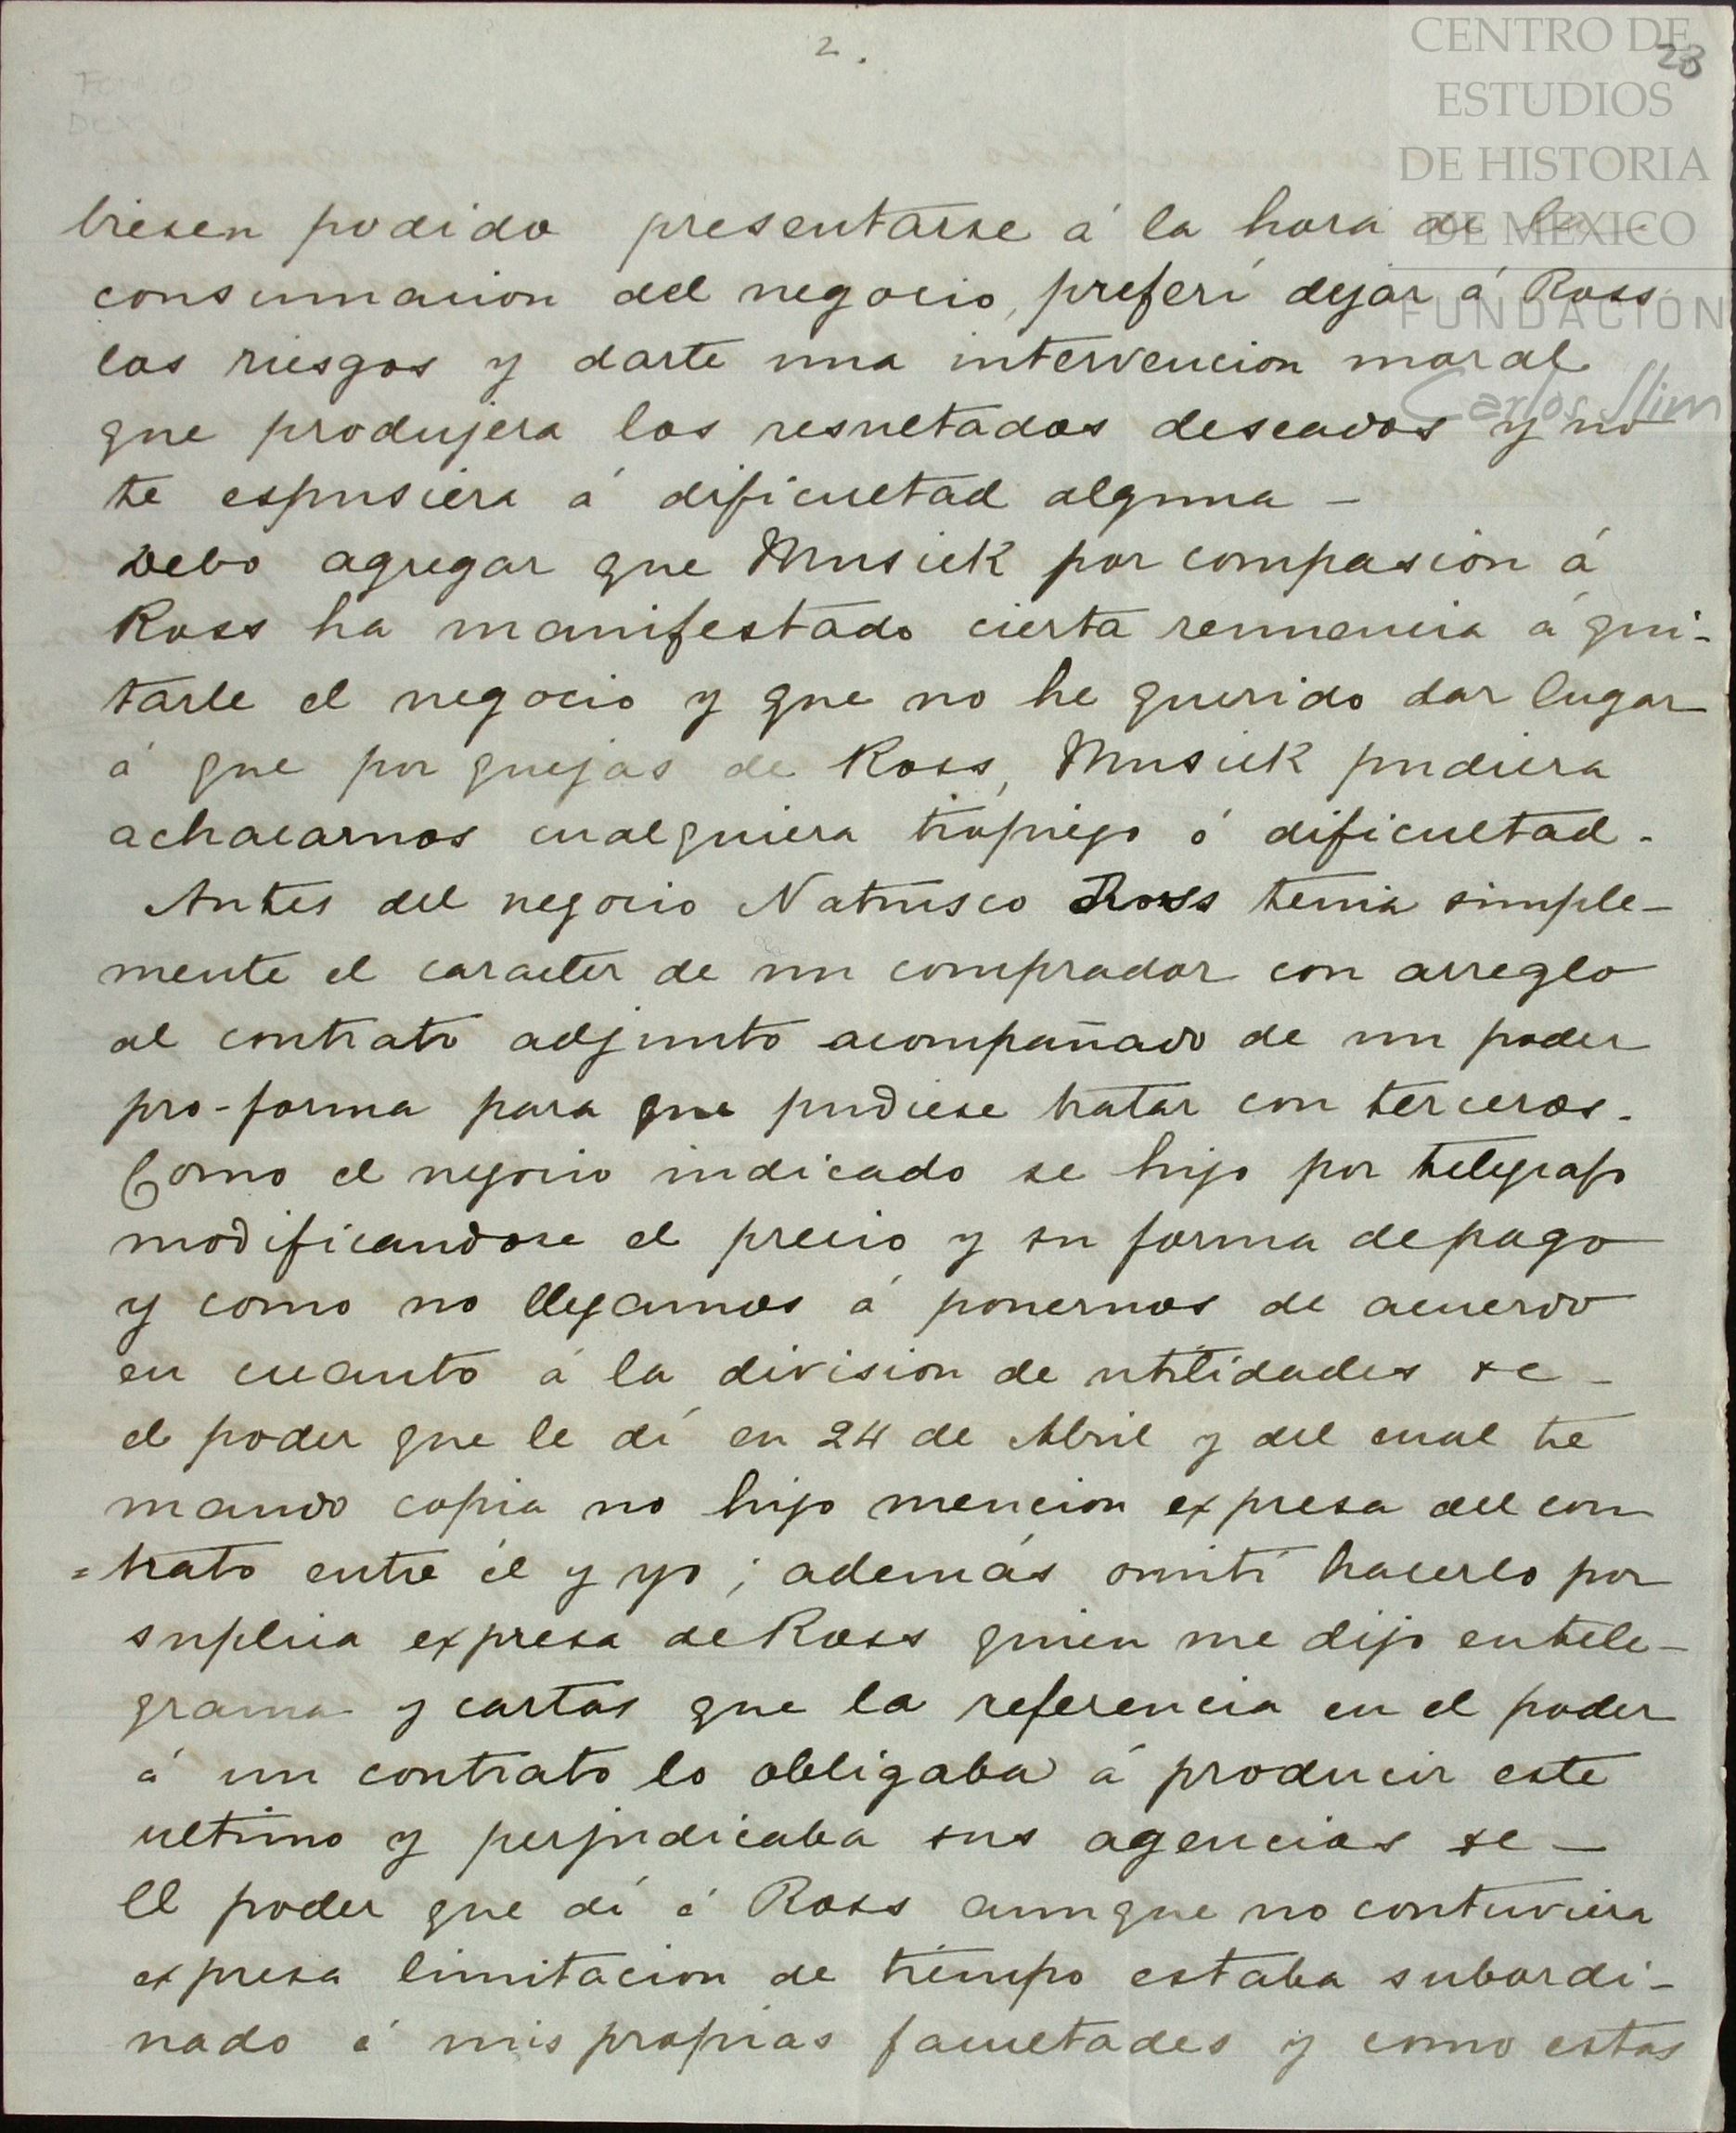 2.
23
CENTRO DE
ESTUDIOS
DE HISTORIA
DE MEXICO
FUNDACIÓN
Carlos Slim
biesen podido presentarse á la hora de la
consumacion del negocio, preferí dejar á Ross
los riesgos y darte una intervencion moral
que produjera los resultados deseados y no
te espusiera á dificultad alguna —
Debo agregar que Musick por compasion á
Ross ha manifestado cierta renuencia á qui-
tarle el negocio y que no he querido dar lugar
á que por quejas de Ross, Musick pudiera
achacarnos cualquiera tropiezo ó dificultad.
Antes del negocio Ross tenia simple-
mente el caracter de un comprador con arreglo
al contrato adjunto acompañado de un poder
pro-forma para que pudiese tratar con terceros.
Como el negocio indicado se hizo por telegrafo
modificandose el precio y su forma de pago
y como no llegamos á ponernos de acuerdo
en cuanto á la division de utilidades &c —
el poder que le dí en 24 de Abril y del cual te
mando copia no hizo mencion expresa del con
=trato entre él y yo; además omití hacerlo por
suplica expresa de Ross quien me dijo en tele-
grama y cartas que la referencia en el poder
á un contrato lo obligaba á producir este
ultimo y perjudicaba sus agencias &c —
El poder que dí á Ross aunque no contuviera
expresa limitacion de tiempo estaba subordi-
nado á mis propias facultades y como estas